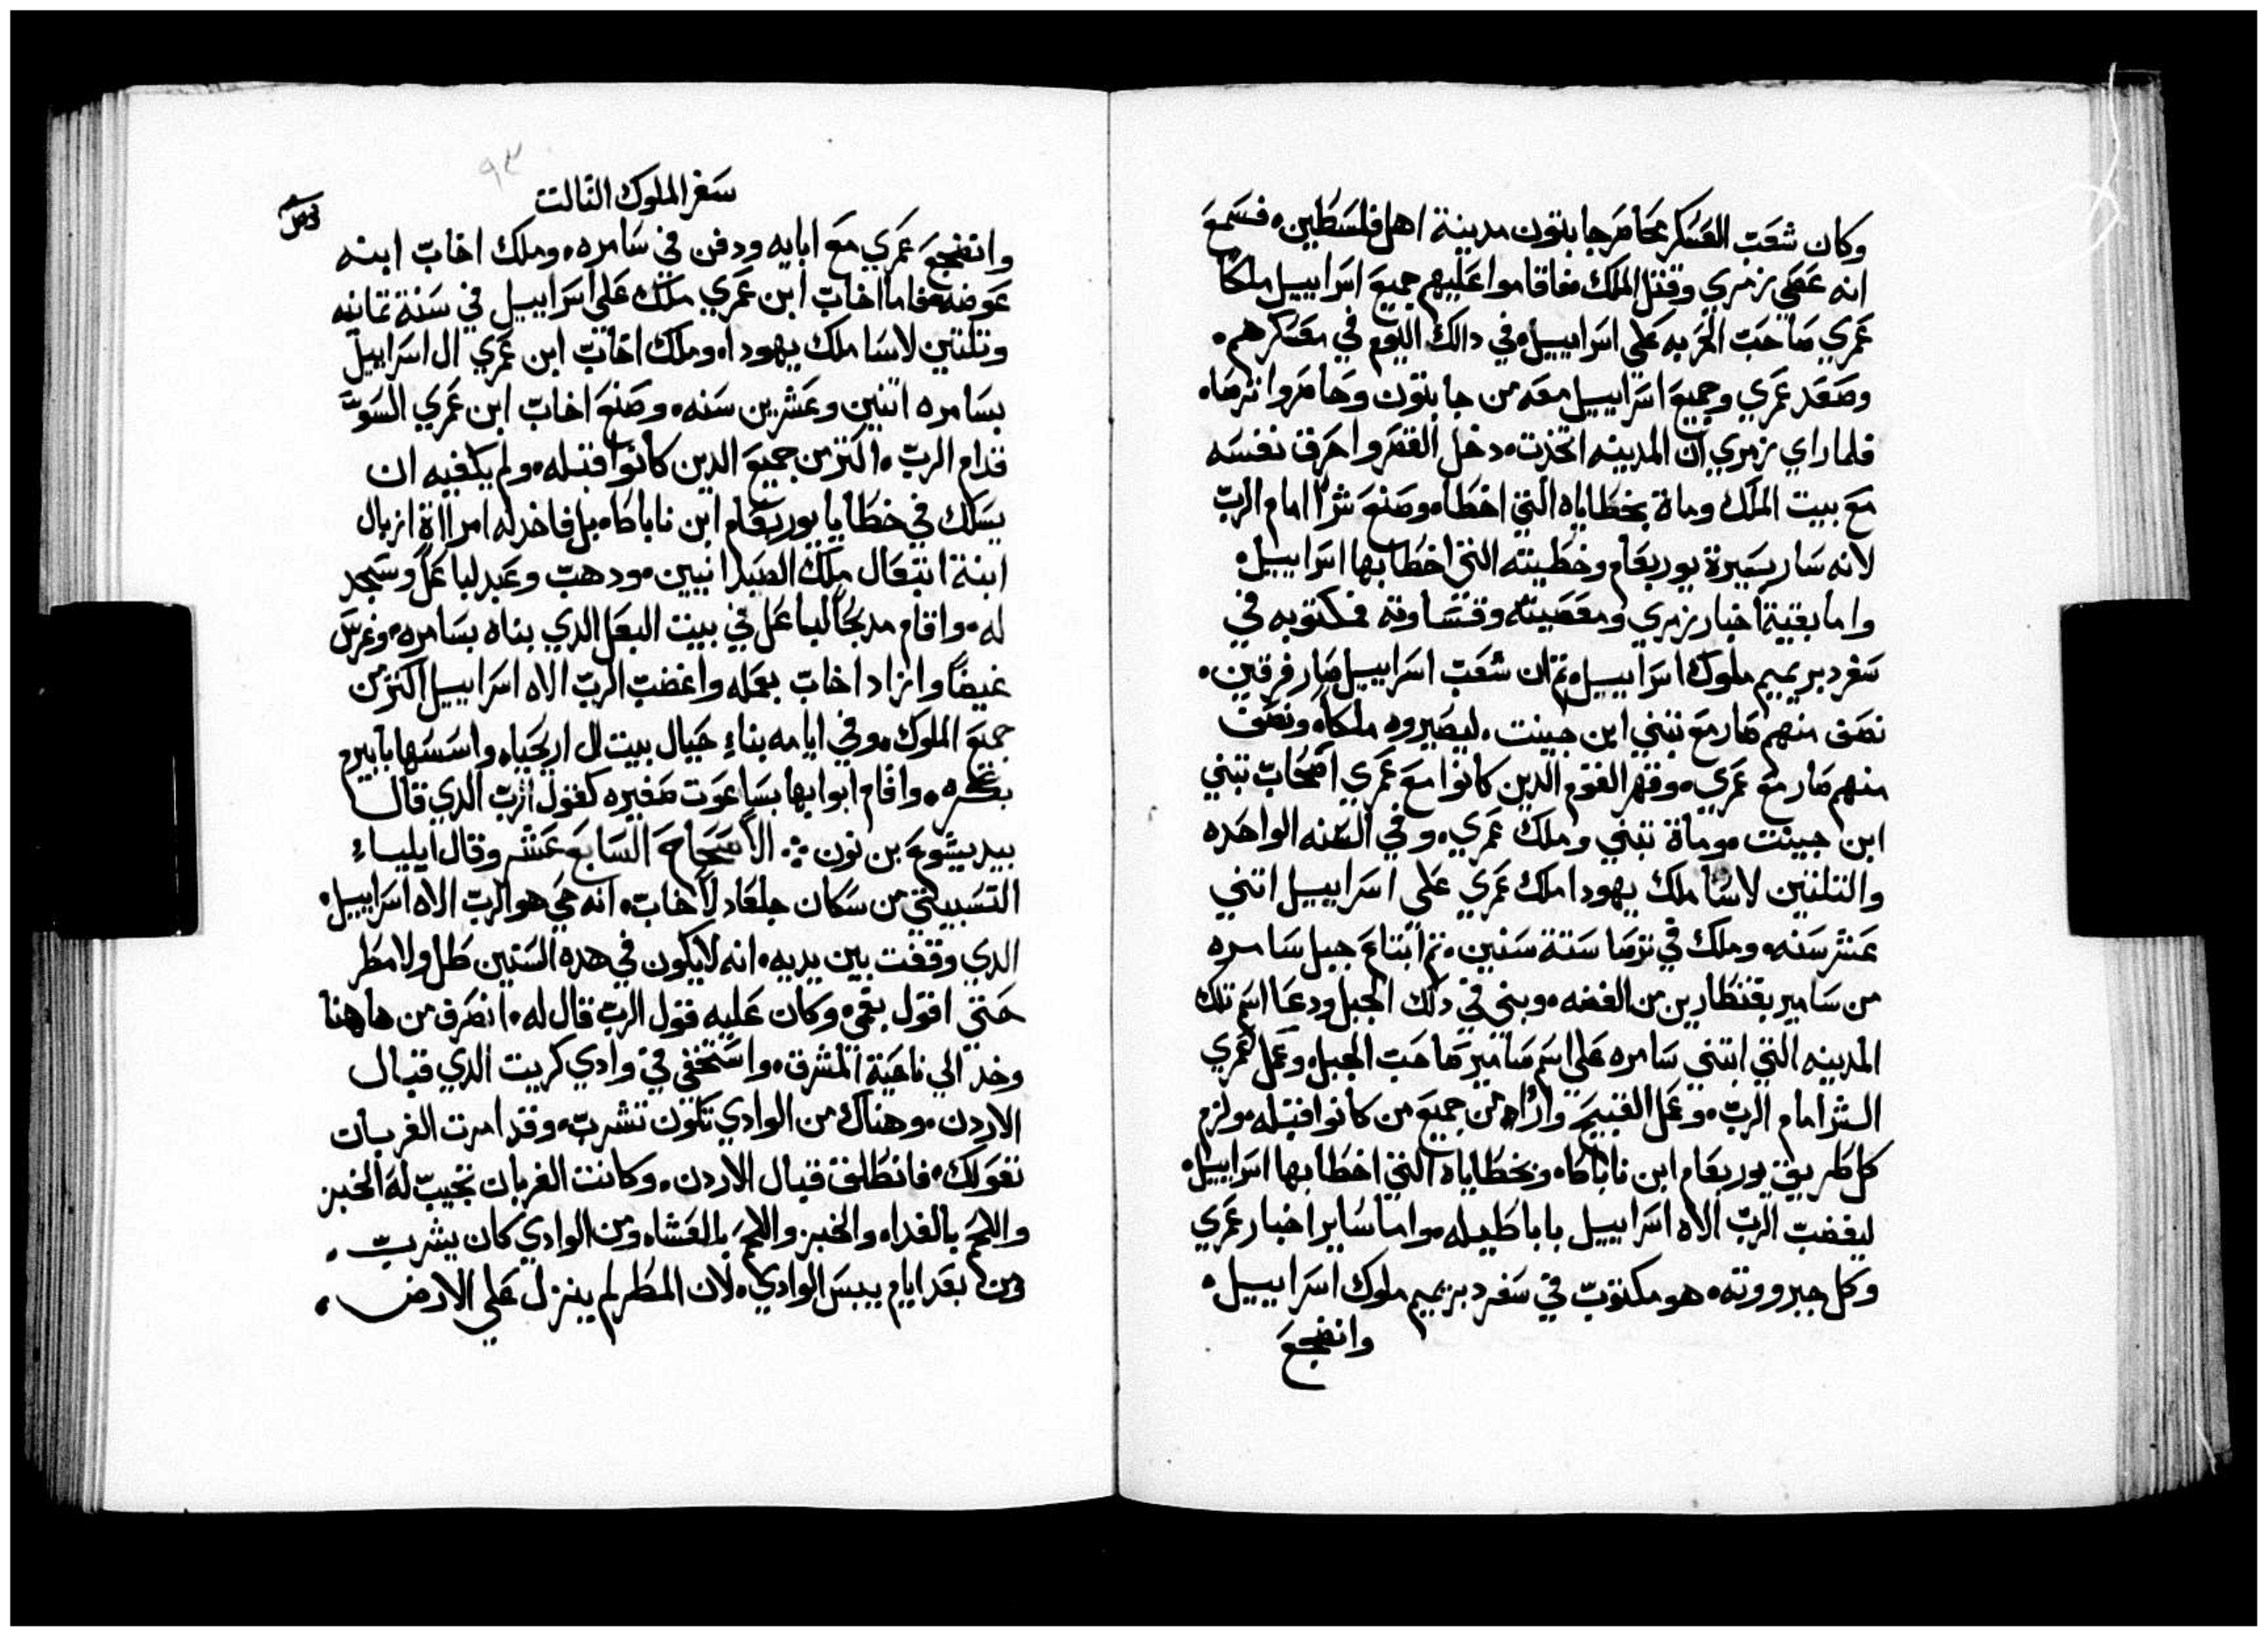 وكان شعب العسكر محاصر جابتون مدينة اهل فلسطين. فسمع
انه عصي زمري وقتل الملك. فاقاموا عليهم جميع اسراييل ملكا
عمري صاحب الحربه علي اسراييل. في دالك اليوم في معسكرهم.
وصعد عمري وجميع اسراييل معه من جابتون وحاصروا ترصا.
فلما راي زمري ان المدينه اتخذت. دخل القصر واحرق نفسه
مع بيت الملك ومات بخطاياه التي اخطا. وصنع شرا امام الرب
لانه سار بسيرة يوربعام وخطيته التي اخطا بها اسراييل.
واما بقية اخبار زمري ومعصيته وقساوته فمكتوبه في
سفر دبريميم ملوك اسراييل. تم ان شعب اسراييل صار فرقين.
نصف منهم صار مع تبني ابن جينت. ليصيروه ملكا. ونصف
منهم صار مع عمري. وقهر القوم الدين كانوا مع عمري اصحاب تبني
ابن جينت. ومات تبني وملك عمري. وفي السنه الواحده
والتلتين لاسا ملك يهودا ملك عمري علي اسراييل اتني
عشر سنه. وملك في ترصا ستة سنين. تم ابتاع جبل سامره
من سامير بقنطارين من الفضه. وبني في دلك الجبل ودعا اسم تلك
المدينه التي ابتني سامره علي اسم سامير صاحب الجبل. وعمل عمري
الشر امام الرب. وعمل القبيح وازاد من جميع من كانوا قبله. ولزم
كل طريق يوربعام ابن ناباطا. وبخطاياه التي اخطا بها اسراييل.
ليغضب الرب الاه اسراييل باباطيله. واما ساير اخبار عمري
وكل جبرووته. هو مكتوب في سفر دبريميم ملوك اسراييل.
وانضجع
٩٣
سفر الملوك التالت
وانضجع عمري مع ابايه ودفن في سامره. وملك اخاب ابنه
عوضه. فاما اخاب ابن عمري ملك علي اسراييل في سنة تمانيه
وتلتين لاسا ملك يهودا. وملك اخاب ابن عمري ال اسراييل
بسامره اتنين وعشرين سنه. وصنع اخاب ابن عمري السو
قدام الرب. اكتر من جميع الدين كانوا قبله. ولم يكفيه ان
يسلك في خطايا يوربعام ابن ناباطا. بل فاخد له امراة ازبال
ابنة اتبعال ملك الصيدانيين. ودهب وعبد لباعل وسجد
له. واقام مدبحا لباعل في بيت البعل الدي بناه بسامره. وغرس
غيضا وازاد اخاب بعمله واغضب الرب الاه اسراييل اكتر من
جميع الملوك. وفي ايامه بناء حيال بيت ال اريحيا. واسسها بابيرم
بكره. واقام ابوابها بساعوت صغيره كقول الرب الدي قال
بيد يشوع بن نون ⁘ الاصحاح السابع عشر وقال ايلياء
التسبيتي من سكان جلعاد لاخاب. انه حي هو الرب الاه اسراييل.
الدي وقفت بين يديه. انه لا يكون في هده السنين طل ولا مطر
حتي اقول بفمي. وكان عليه قول الرب قال له. انصرف من هاهنا
وخد الي ناحية المشرق. واستخفي في وادي كريت الدي قبال
الاردن. وهناك من الوادي تكون تشرب. وقد امرت الغربان
تقولك. فانطلق قبال الاردن. وكانت الغربان تجيب له الخبز
واللحم بالغداه والخبز واللحم بالعشا. ومن الوادي كان يشرب.
ومن بعد ايام يبس الوادي. لان المطر لم ينزل علي الارض.